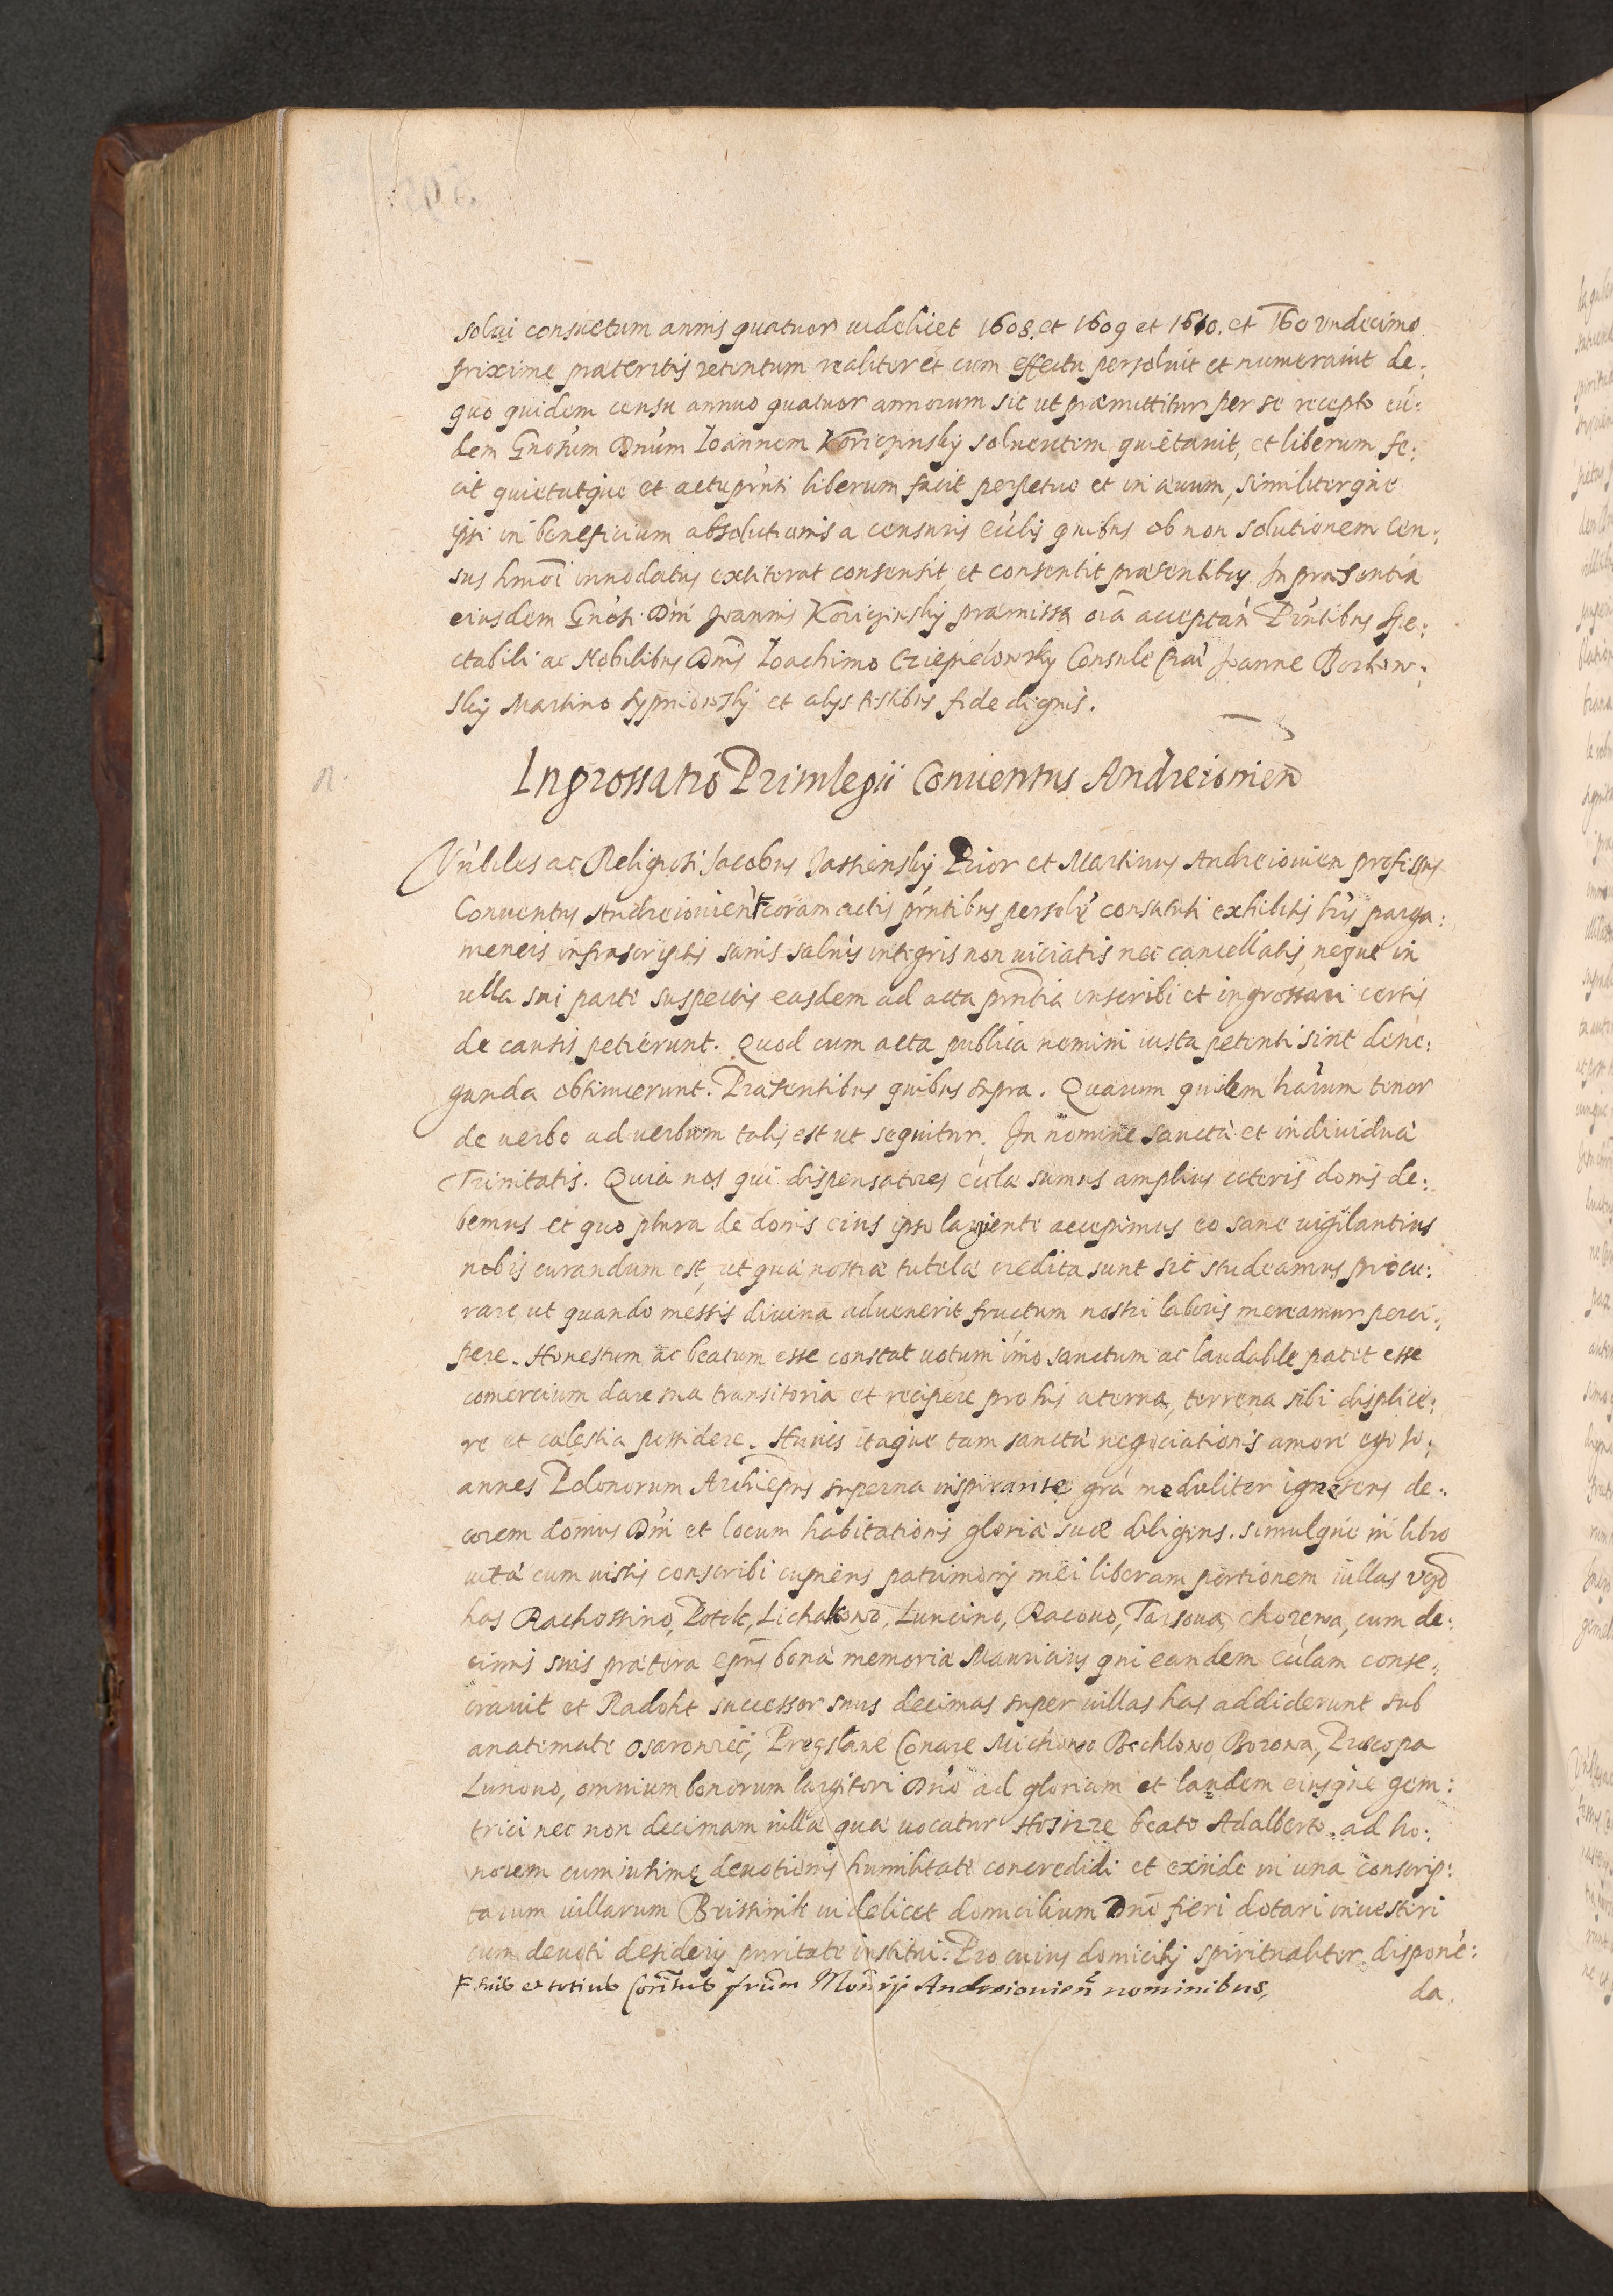 solui consuetum annis quatuor uidelicet 1608. et 1609 et 1610. et 160 vndecimo
prixime præteritis retentum realiter et cum effectu persoluit et numerauit de:
quo quidem censu annuo quatuor annorum sic ut præmittitur per se recepto eu:
dem Gnosum Dnum Ioannem Koriczinskij soluentem quietauit, et liberum fe:
cit quietatque et actu prnti liberum facit perpetuo et in æuum, similiterque
ipsi in beneficium absolutionis a censuris ecclis quibus ob non solutionem cen:
sus hmoi innodatus extiterat consensit et consentit præsentibus. In præsentia
eiusdem Gnosi Dni Joannis Koriczinskij præmissa oia acceptan Prntibus spe:
ctabili ac Nobilibus Dnis Ioachimo Cziepielowsky Consule Crac Joanne Borkow:
skij Martino Lypniowskij et alys testibus fide dignis.
Ingrossatio Priuilegii Conuentus Andreiouien
Vnbiles ac Religiosi Jacobus Jassienskij Prior et Martinus Andreiouien professus
Conuentus Andreiouien F coram actis prntibus personlr constituti exhibitis lris parga:
meneis infrascriptis sanis saluis integris non uiciatis nec cancellatis, neque in
ulla sui parte suspectis easdem ad acta prntia inscribi et ingrossari certis
de causis petierunt. Quod cum acta publica nemini iusta petenti sint dene:
ganda obtinuerunt. Præsentibus quibus supra. Quarum quidem harum tenor
de uerbo ad uerbum talis est ut sequitur. In nomine sanctæ et indiuiduæ
Trinitatis. Quia nos qui dispensatores eclæ sumus amplius ceteris domis de:
bemus et quo plura de donis eius ipso largiente accepimus eo sane uigilantius
nobis curandum est, ut quæ nostræ tutelæ credita sunt sic studeamus procu:
rare ut quando messis diuina aduenerit fructum nostri laboris mereamur perci:
pere. Honestum ac beatum esse constat uotum imo sanctum ac laudabile patet esse
comercium dare sua transitoria et recipere pro his æterna, terrena sibi displice:
re et cælestia possidere. Huius itaque tam sanctæ negociationis amore ego Jo:
annes Polonorum Archiepus superna inspirante gra meduliter ignescens de:
corem domus Dni et locum habitationis gloriæ suæ diligens. simulque in libro
uitæ cum iustis conscribi cupiens patrimonij mei liberam portionem uillas vgo
has Rachossino, Potok, Lichakowo, Luncino, Racouo, Tarsoua, Chorewa, cum de:
cimis suis prætera epus bonæ memoriæ Mauricius qui eandem eclam conse:
crauit et Radost successor suus decimas super uillas has addiderunt sub
anatemate osarowiec, Pregslawe Conare Michowo Bechlowo Borowa, Pruscopa
Lunono, omnium bonorum largitori Dno ad gloriam et laudem eiusque geni:
trici nec non decimam uillæ quæ uocatur Hosirze beato Adalberto. ad ho:
norem cum intimę deuotionis humilitate concredidi et exinde in una conscrip:
tarum uillarum Brissinik uidelicet domicilium Dno fieri dotari inuestiri
cum deuoti desiderij puritate institui. Pro cuius domicilij spiritualiter disponē:
F suis et totius Conntus frum Monrij Andreiouien nominibus, da.